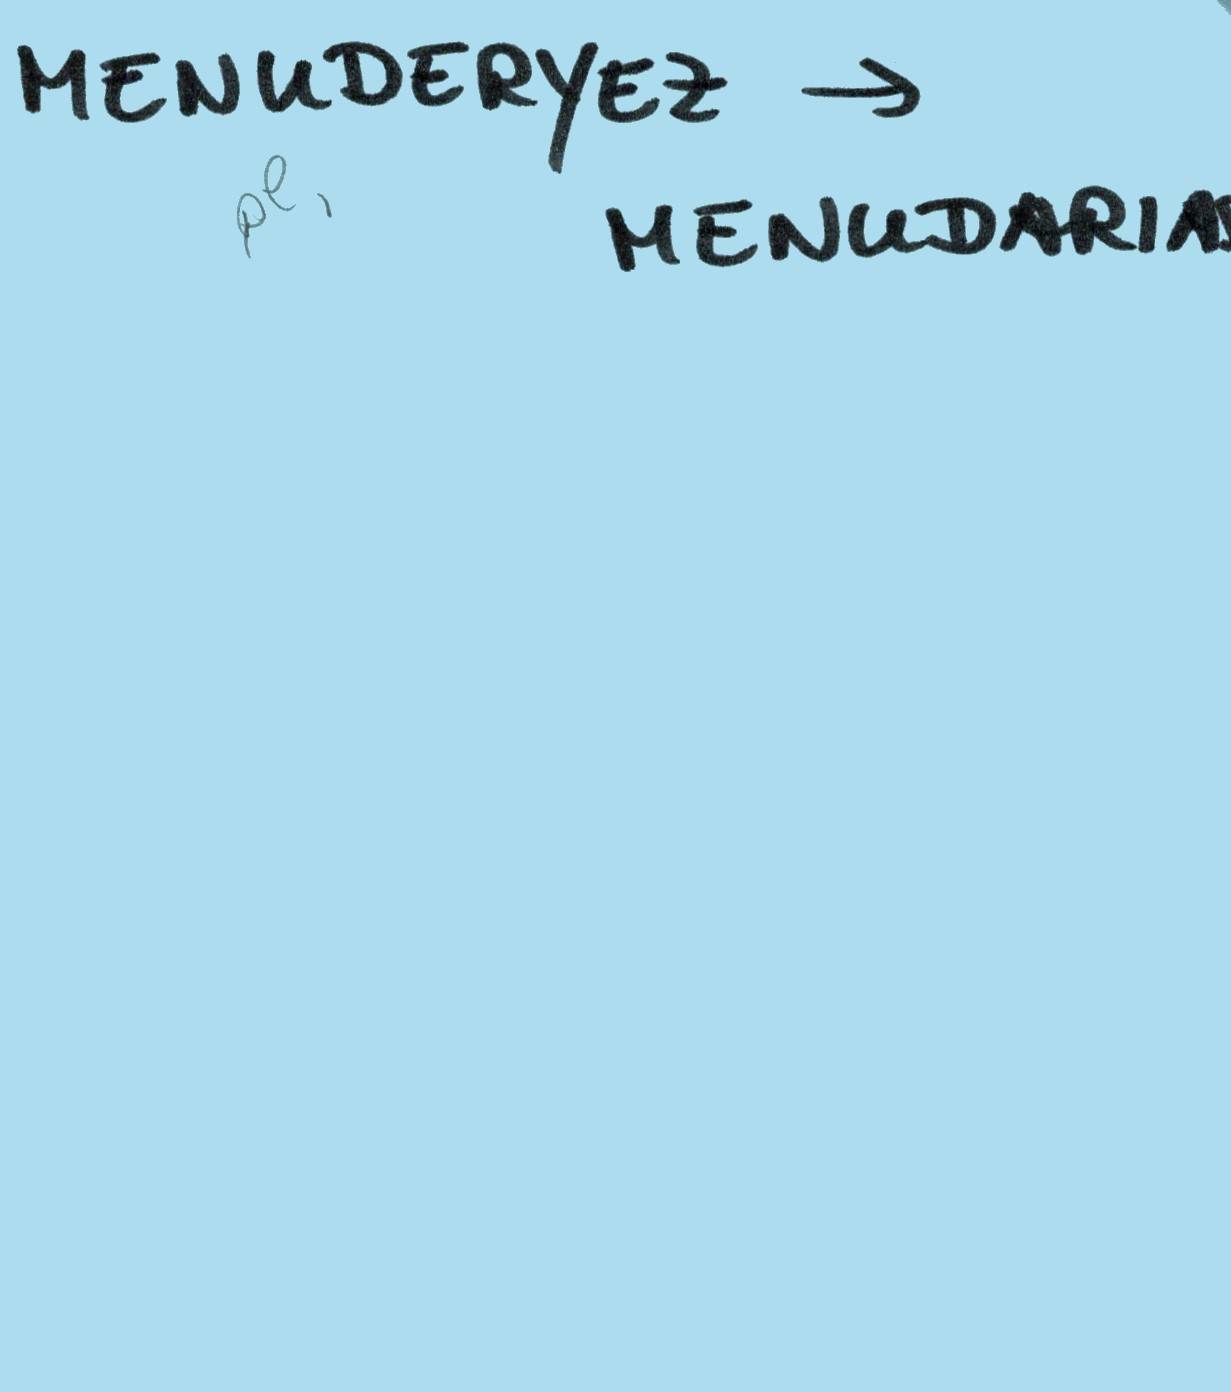 MENUDERYEZ →
pl,
MENUDARIAS